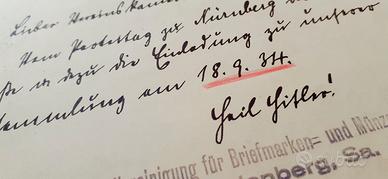 Lieber Vereinskam
Vom Protestag zu Nürnberg
in dazu die Einladung zu unserer
ammlung am 18.9.34.
Heil Hitler!
einigung für Briefmarken= und Münz
enberg, Sa.